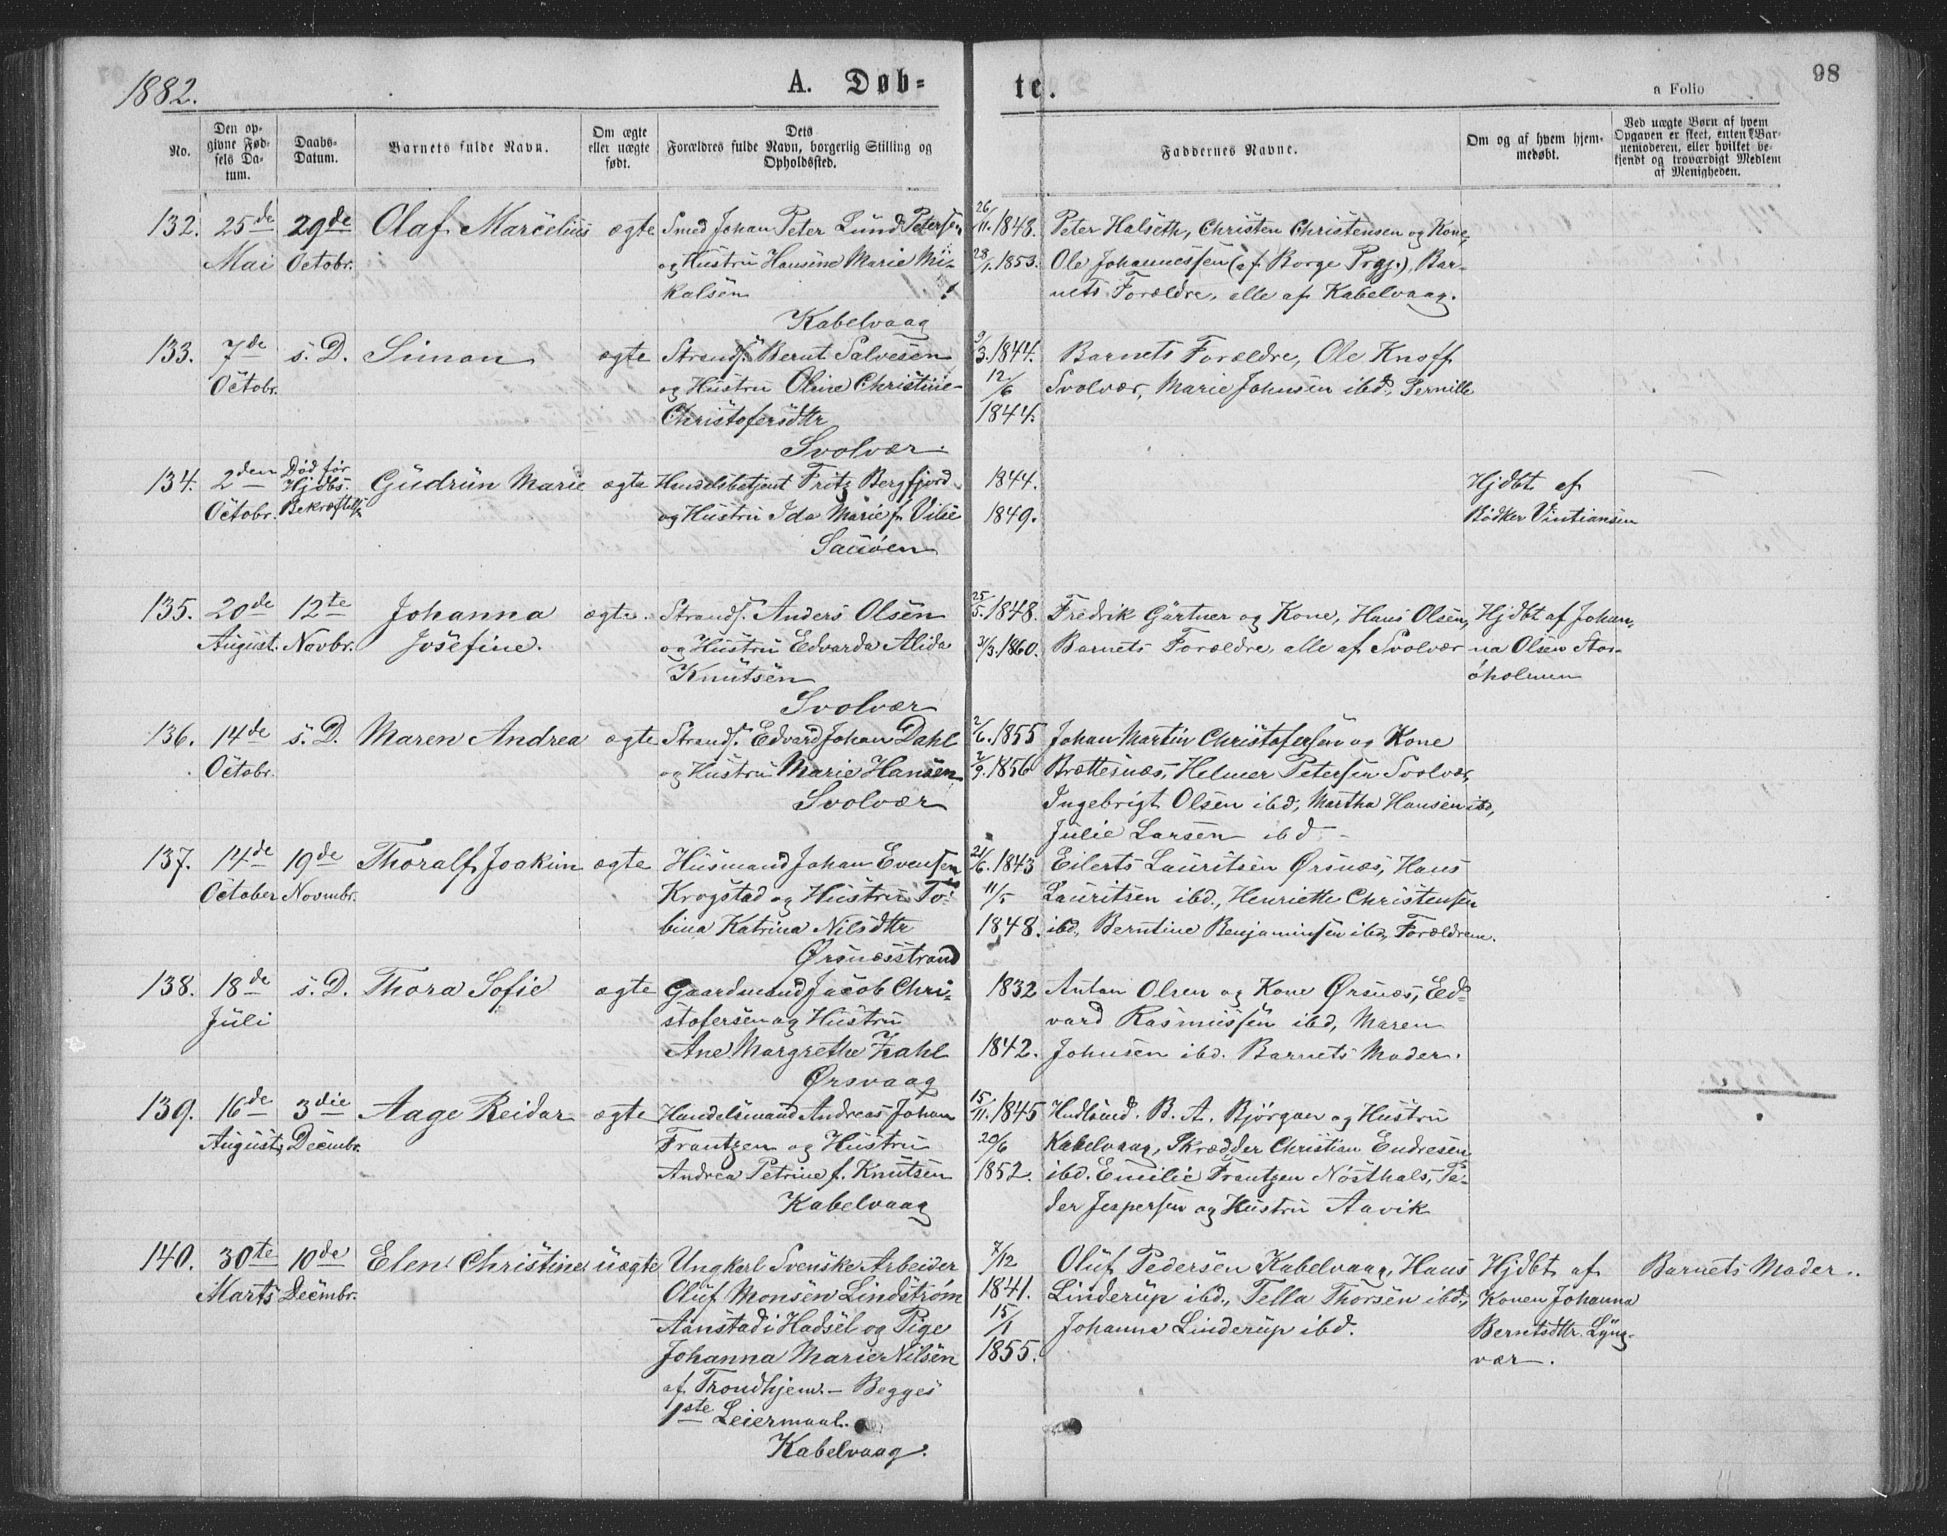 1882.
A. Døb=
te.
a Folio
98
No.
Den op-
givne Fød-
sels Da-
tum.
Daabs-
Datum.
Barnets fulde Navn.
Om ægte
eller uægte
født.
Dets
Forældres fulde Navn, borgerlig Stilling og
Opholdssted.
Faddernes Navne.
Om og af hvem hjem-
medøbt.
Ved uægte Børn af hvem
Opgaven er skeet, enten Bar-
nemoderen, eller hvilket be-
kjendt og troværdigt Medlem
af Menigheden.
132. 25de Mai
29de Octobr.
Olaf Marcelius
ægte
Smed Johan Peter Lund Petersen
og Hustru Hansine Marie Mi-
kalsen
Kabelvaag
26/11. 1848.
28/1. 1853.
Peter Halseth, Christen Christensen og Kone,
Ole Johannessen (af Borge Prgj.), Bar-
nets Forældre, alle af Kabelvaag.
133. 7de Octobr.
s. D.
Simon
ægte
Strands. Bernt Salvesen
og Hustru Oline Christine
Christofersdtr
Svolvær
9/3. 1844.
12/6
1844.
Barnets Forældre, Ole Knoff
Svolvær, Marie Johnsen ibd, Pernille
134. 2den Octobr.
Død før
Hjdbs.
Bekræftels
Gudrun Marie
ægte
Handelsbetjent Fritz Bergfjord
og Hustru Ida Marie f. Vibe
Sauøen
1844.
1849.
Hjdbt af
Bødker Vintiansen
135. 20de August.
12te Novbr.
Johanna
Josefine.
ægte.
Strands. Anders Olsen
og Hustru Edvarda Alida
Knutsen
Svolvær
25/5. 1848.
3/3. 1860.
Fredrik Gärtner og Kone, Hans Olsen,
Barnets Forældre, alle af Svolvær
Hjdbt af Johan-
na Olsen Stor-
øholmen
136. 14de Octobr.
s. D.
Maren Andrea
ægte
Strands. Edvard Johan Dahl
og Hustru Marie Hansen
Svolvær
2/6. 1855
2/9. 1856
Johan Martin Christofersen og Kone
Brættesnæs, Helmer Petersen Svolvær,
Ingebrigt Olsen ibd, Martha Hansen ibd,
Julie Larsen ibd.
137. 14de October
19de Novmbr.
Thoralf Joakim
ægte
Husmand Johan Evensen
Krogstad og Hustru To-
bina Katrina Nilsdtr
Ørsnæsstrand
21/6. 1843
11/5
1848.
Eilerts Lauritsen Ørsnæs, Hans
Lauritsen ibd., Henriette Christensen
ibd, Berntine Benjaminsen ibd, Forældrene.
138. 18de Juli
s. D.
Thora Sofie
ægte
Gaardmand Jacob Chri-
stofersen og Hustru
Ane Margrethe Zahl
Ørsvaag
1832
1842.
Anton Olsen og Kone Ørsnæs, Ed-
vard Rasmussen ibd, Maren
Johnsen ibd. Barnets Moder.
139. 16de August
3die Decmbr.
Aage Reidar
ægte
Handelsmand Andreas Johan
Frantzen og Hustru
Andrea Petrine f. Knutsen
Kabelvaag
15/11. 1845
20/6
1852.
Hndlsmd. B. A. Bjørgan og Hustru
Kabelvaag, Skrædder Christian Endresen
ibd. Emilie Frantzen Nøsthals, Pe-
der Jespersen og Hustru Aavik
140. 30te Marts
10de Decmbr.
Elen Christine
uægte
Ungkarl Svenske Arbeider
Oluf Monsen Lindstrøm
Aanstad i Hadsel og Pige
Johanna Marie Nilsen
af Trondhjem. - Begges
1ste Leiermaal.
Kabelvaag.
7/12
1841.
15/1
1855.
Oluf Pedersen Kabelvaag, Hans
Linderup ibd., Tella Thorsen ibd.,
Johanna Linderup ibd.
Hjdbt af
Konen Johanna
Berntsdtr. Lyng-
vær.
Barnets Moder.